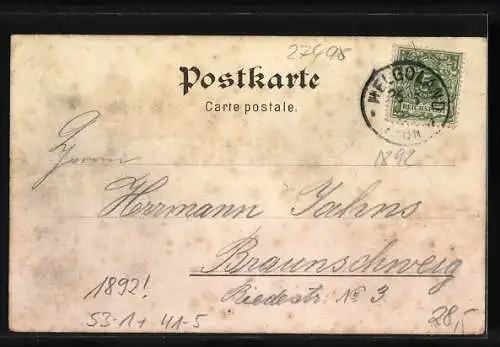 27498
Postkarte
Carte postale.
HELGOLAND
REICHSPOST
1892
Herrn
Herrmann Jahns
Braunschweig
Riedestr. No 3.
1892!
53-1+ 41-5
28,5